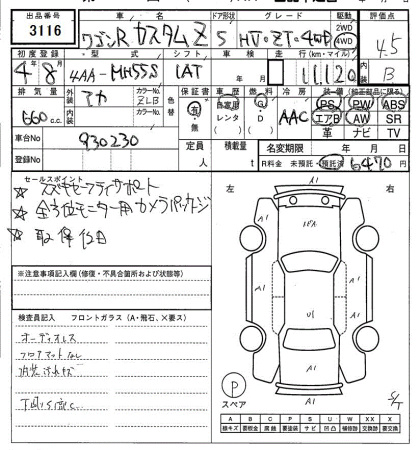 出品番号 車名 ドア形状 グレード 駆動 評価点
3116 ワゴンR カスタムZ 5 HY・ZT・4WD 2WD 4WD 4.5
初度登録 型式 シフト 車検 走行(km・マイル) 内装
4年8月 4AA-MH55S IAT 年 月 11,120 B
排気量 外装色 カラーNo. 色替 カラーNo. 保証書 車歴 燃料 冷房 装備(純正部品に限る)
660 c.c. ZLB 有・無 自家用 レンタ G・D AAC PS PW ABS
エアB AW SR
革 ナビ TV
車台No 930230 定員 人 積載量 t 名変期限 年 月 日
登録No R料金 未預託・預託済 6470円
セールスポイント
☆ スズキセーフティサポート
☆ 全方位モニター用カメラパッケージ
☆ 取保付白
※注意事項記入欄(修復・不具合箇所および状態等)
検査員記入 フロントガラス(A・飛石、×要ス)
オーディオレス
フロアマットなし
内装汚れ
下回りS部
左 右
A1
A1
A1
A1
A1
P スペア
S/T
A B C P S U W X XX
線キズ 要板金 腐蝕 要塗装 サビ 凹凸 補修跡 要交換 交換跡